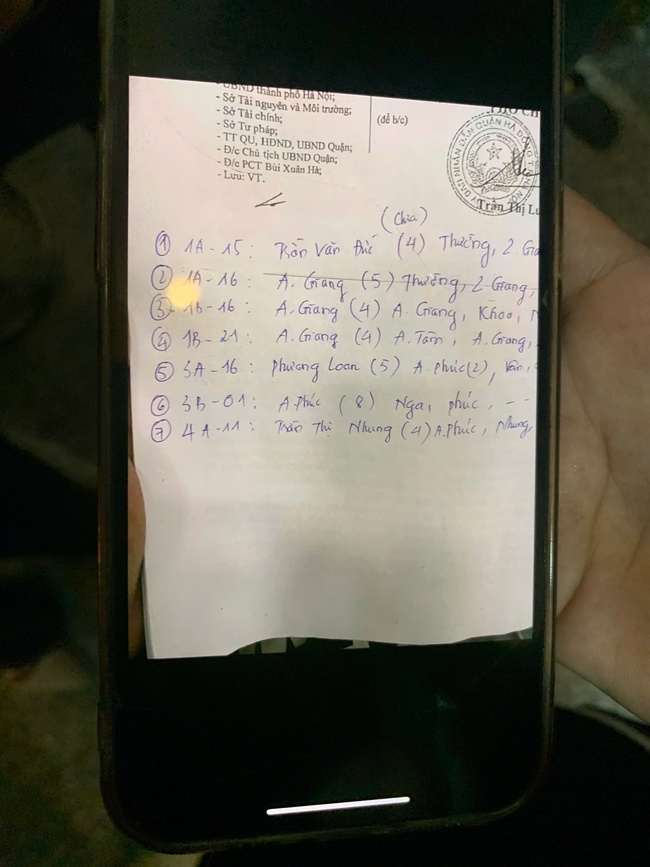 - UBND thành phố Hà Nội;
- Sở Tài nguyên và Môi trường;
- Sở Tài chính;
- Sở Tư pháp;
- TT QU, HĐND, UBND Quận;
- Đ/c Chủ tịch UBND Quận;
- Đ/c PCT Bùi Xuân Hà;
- Lưu: VT.
(để b/c)
Trần Thị Lu
(Chia)
① 1A-15: Trần Văn Đức (4) Thường, 2. Gia
② 1A-16: A. Giang (5) Thường, 2 Giang,
③ 1B-16: A. Giang (4) A. Giang, Khoa,
④ 1B-21: A. Giang (4) A. Tâm, A. Giang,
⑤ 3A-16: Phương Loan (5) A phúc(2), Vân,
⑥ 3B-01: A. Phúc (8) Nga, phúc, --
⑦ 4A-11: Trần Thị Nhung (4) A. Phúc, Nhung,